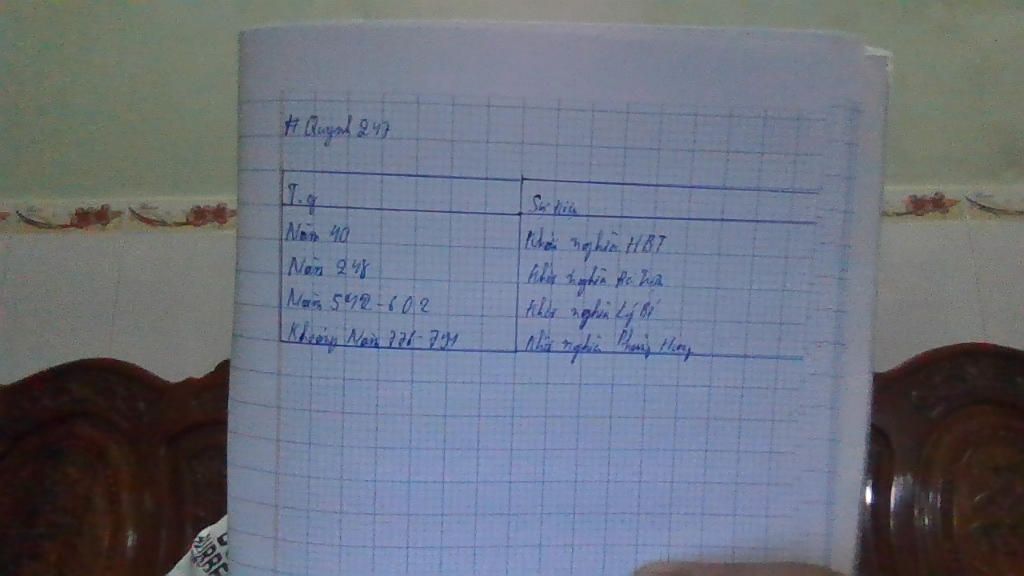 H Quỳnh 247
T.g Sự kiện
Năm 40 Khởi nghĩa HBT
Năm 248 Khởi nghĩa Bà Triệu
Năm 542-602 Khởi nghĩa Lý Bí
Khoảng Năm 776-791 Khởi nghĩa Phùng Hưng